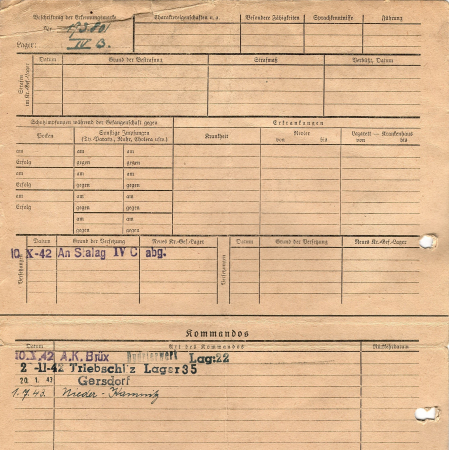 Beschriftung der Erkennungsmarke
Nr.
Lager: IV B.
Charaktereigenschaften u. a.
Besondere Fähigkeiten
Sprachkenntnisse
Führung
Strafen im Kr.-Gef.-Lager
Datum
Grund der Bestrafung
Strafmaß
Verbüßt, Datum
Schutzimpfungen während der Gefangenschaft gegen
Erkrankungen
Pocken
Sonstige Impfungen
(Ty.-Paratyph., Ruhr, Cholera usw.)
Krankheit
Revier
von bis
Lazarett – Krankenhaus
von bis
am am am
Erfolg gegen gegen
am am am
Erfolg gegen gegen
am am am
Erfolg gegen gegen
am am am
Erfolg gegen gegen
am am
gegen gegen
Versetzungen
Datum
Grund der Versetzung
Neues Kr.-Gef.-Lager
Versetzungen
Datum
Grund der Versetzung
Neues Kr.-Gef.-Lager
10. X-42 An Stalag IV C abg.
Kommandos
Datum
Art des Kommandos
Rückkehrdatum
10. X. 42 A.K. Brüx Lag: 22
2 -11-42 Triebschitz Lager 35
20. 1. 43 Gersdorf
1. 7. 43. Nieder - Kamnitz